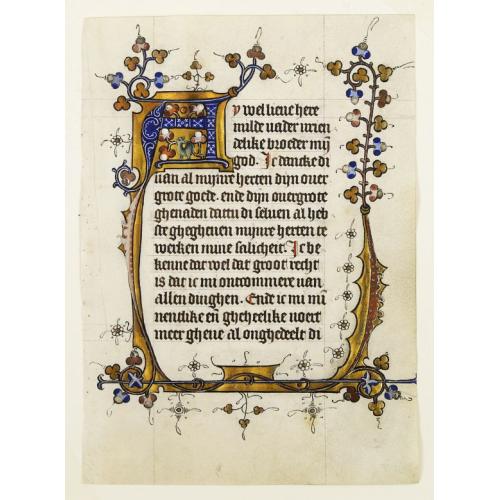 A y wel lieue here
milde uader urien
delike broeder mȳ
god. Ic dancke di
uan al mijnre herten dijn ouer
grote goede. ende dijn ouergrote
ghenaden dattu di seluen al heb
ste ghegheuen mijnre herten te
werken mine salicheit. Ic be
kenne dar wel dat groot recht
is dat ic mi ontcommere uan
allen dinghen. Ende ic mi mī
nentlike eñ gheheelike noert
meer gheue al onghedeelt di